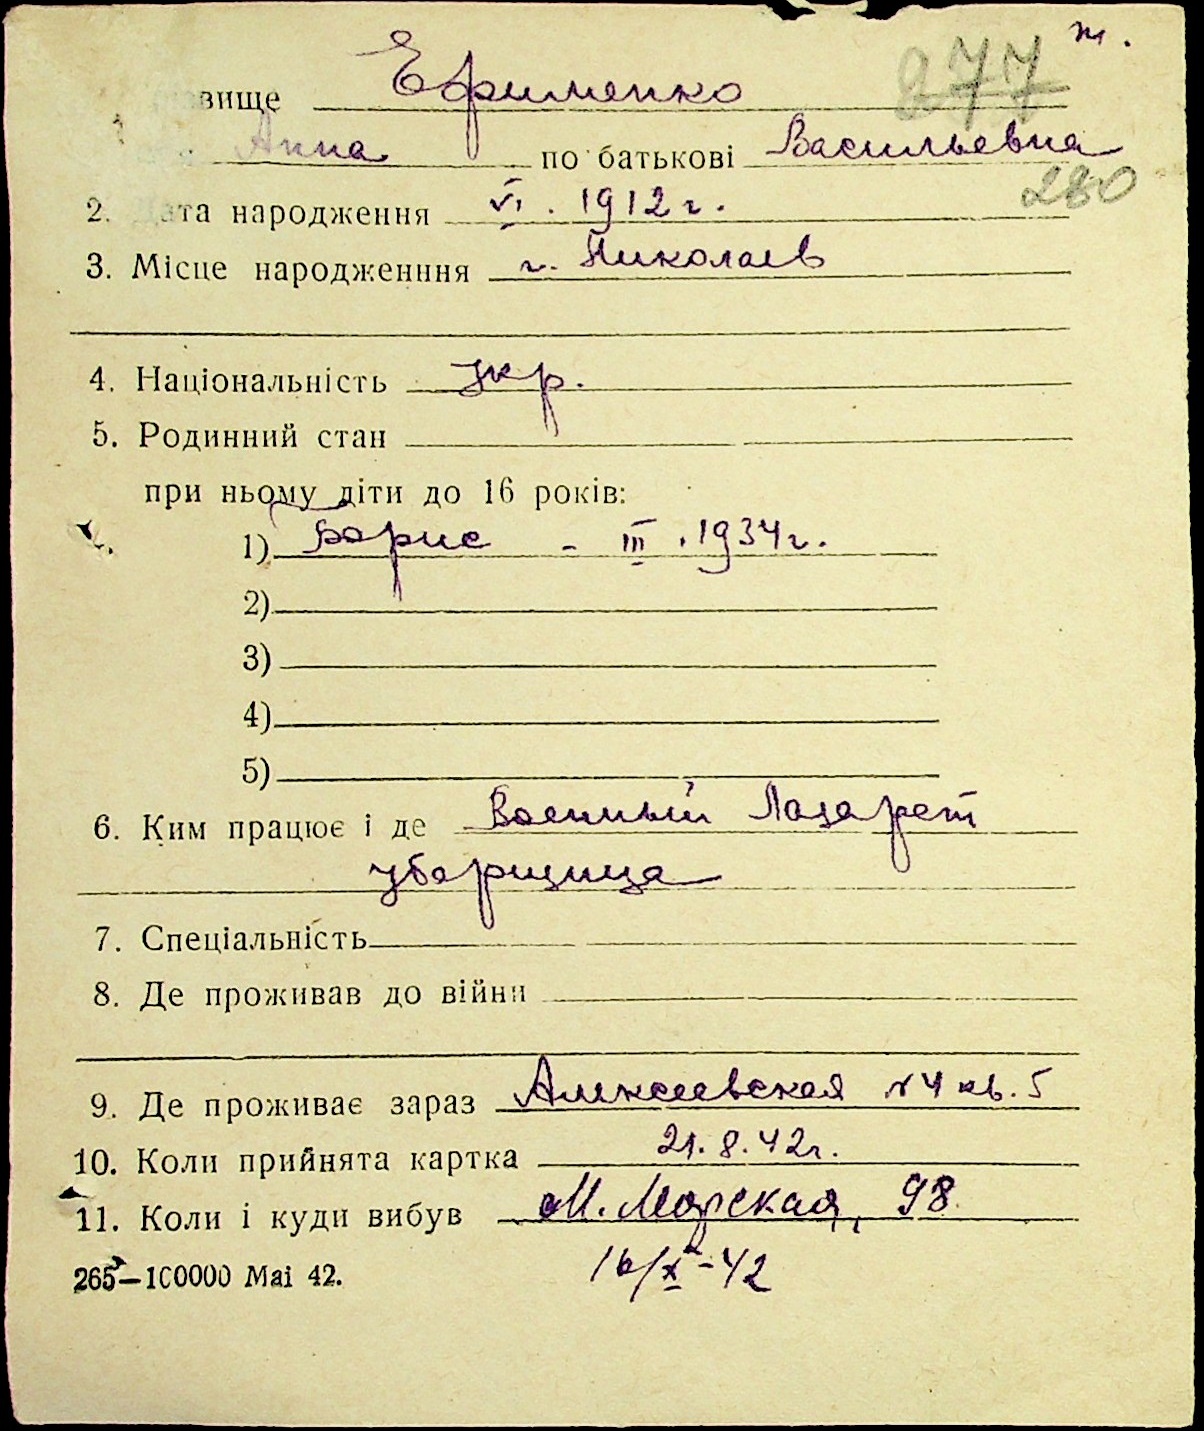 т.
277
вище Ефименко
Анна по батькові Васильевна
280
2. Дата народження VI. 1912 г.
3. Місце народженння г. Николаев
4. Національність укр.
5. Родинний стан
при ньому діти до 16 років:
1) Борис - III. 1934 г.
2)
3)
4)
5)
6. Ким працює і де Военный Лазарет
уборщица
7. Спеціальність
8. Де проживав до війни
9. Де проживає зараз Алексеевская №4 кв. 5
10. Коли прийнята картка 21. 8. 42 г.
11. Коли і куди вибув М. Морская, 98
16/X-42
265—100000 Mai 42.